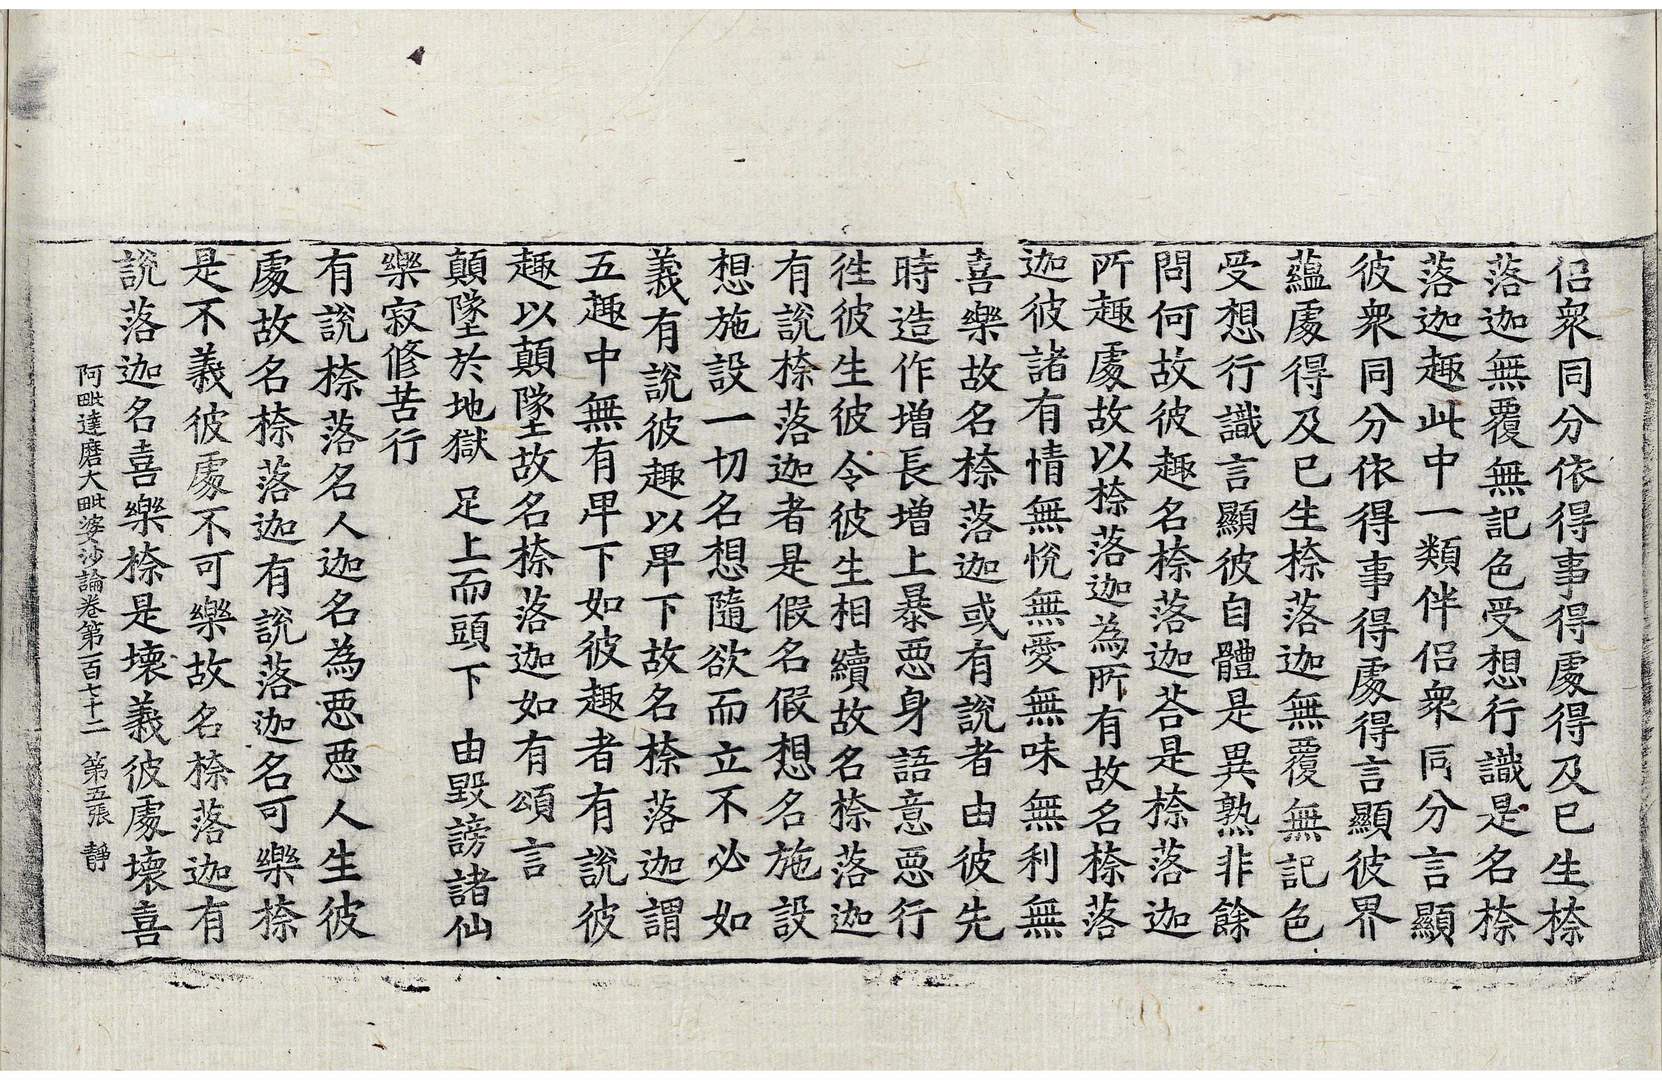 侶衆同分依得事得處得及已生㮈
落迦無覆無記色受想行識是名㮈
落迦趣此中一類伴侶衆同分言顯
彼衆同分依得事得處得言顯彼界
蘊處得及已生㮈落迦無覆無記色
受想行識言顯彼自體是異熟非餘
問何故彼趣名㮈落迦荅是㮈落迦
所趣處故以㮈落迦為所有故名㮈落
迦彼諸有情無悅無愛無味無利無
喜樂故名㮈落迦或有說者由彼先
時造作增長增上暴惡身語意惡行
徃彼生彼令彼生相續故名㮈落迦
有說㮈落迦者是假名假想名施設
想施設一切名想隨欲而立不必如
義有說彼趣以卑下故名㮈落迦謂
五趣中無有卑下如彼趣者有說彼
趣以顛墜故名㮈落迦如有頌言
顛墜於地獄 足上而頭下 由毀謗諸仙
樂寂修苦行
有說㮈落名人迦名為惡惡人生彼
處故名㮈落迦有說落迦名可樂㮈
是不義彼處不可樂故名㮈落迦有
說落迦名喜樂㮈是壞義彼處壞喜
阿毗達磨大毗婆沙論卷第一百七十二 第五張 靜